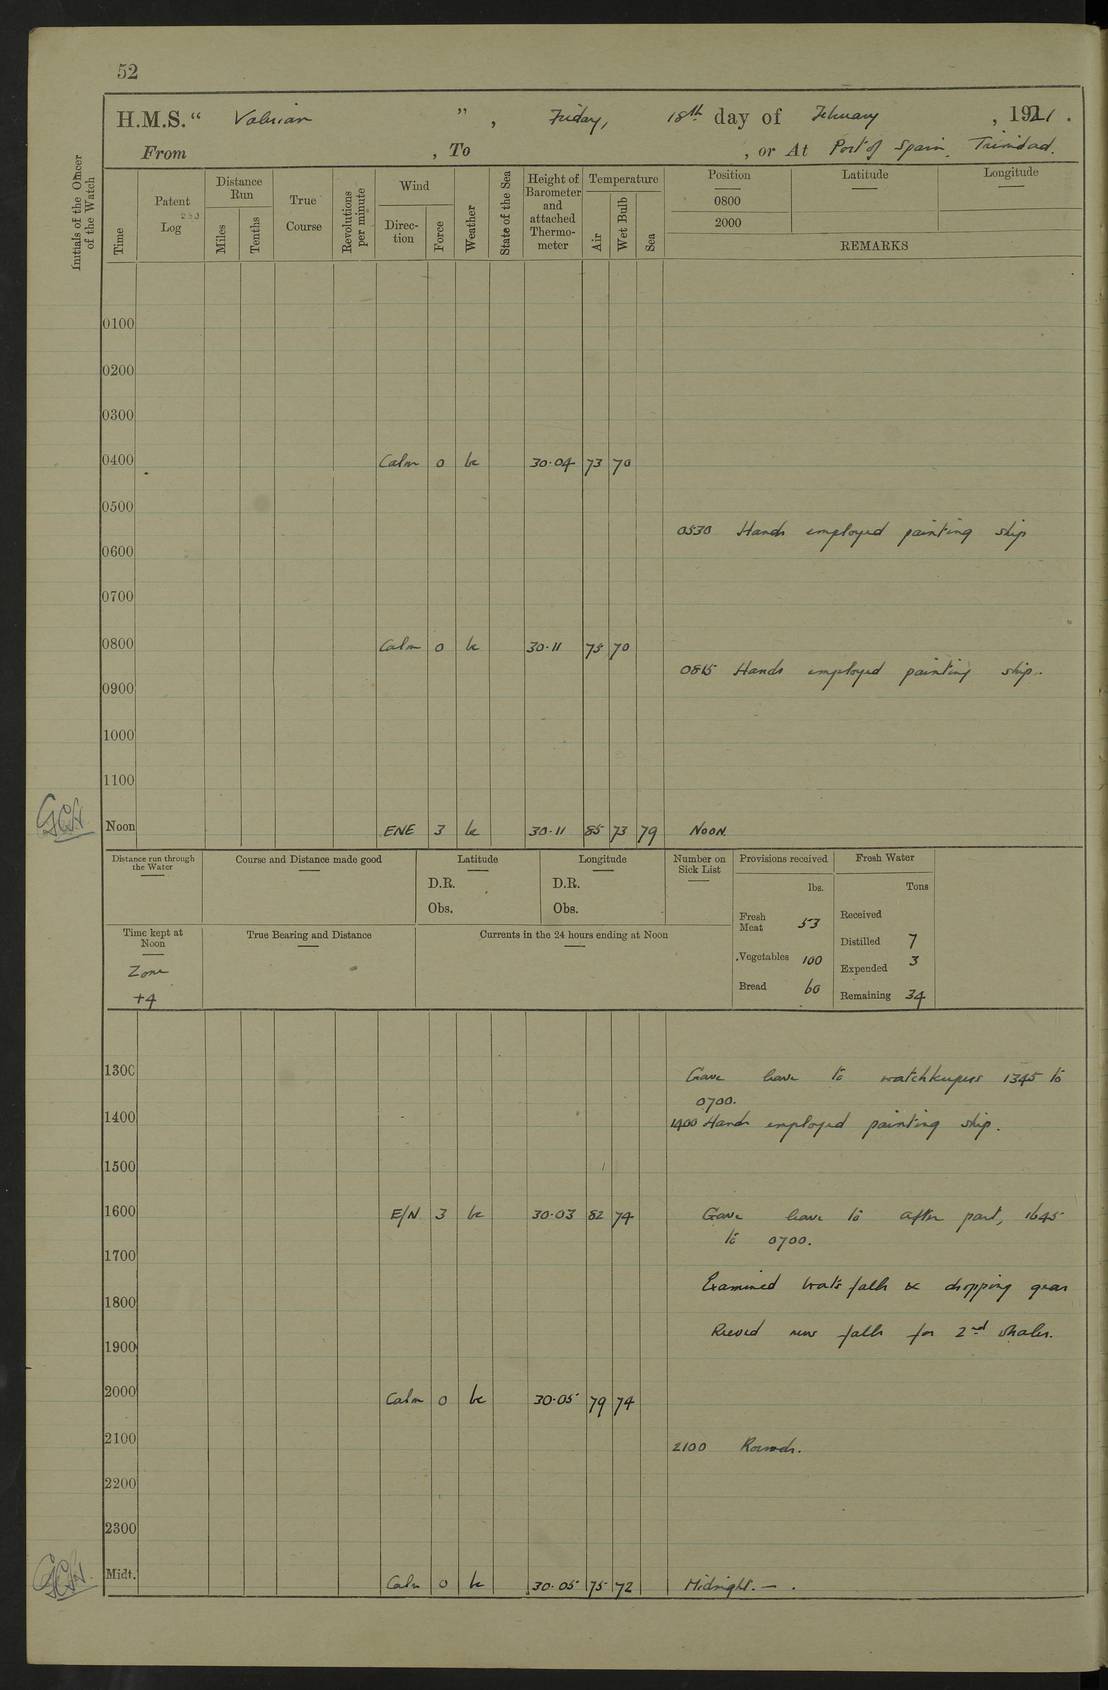 52
H.M.S. “ Valerian ” , Friday, 18th day of February , 1921 .
From , To , or At Port of Spain, Trinidad.
Initials of the Officer of the Watch
Time
Patent Log
Distance Run
Miles
Tenths
True Course
Revolutions per minute
Wind
Direc- tion
Force
Weather
State of the Sea
Height of Barometer and attached Thermo- meter
Temperature
Air
Wet Bulb
Sea
Position Latitude Longitude
0800
2000
REMARKS
0100
0200
0300
0400 Calm 0 bc 30·04 73 70
0500
0530 Hands employed painting ship
0600
0700
0800 Calm 0 bc 30·11 75 70
0815 Hands employed painting ship.
0900
1000
1100
GCH
Noon ENE 3 bc 30·11 85 73 79 NOON
Distance run through the Water
Course and Distance made good
Latitude
D.R.
Obs.
Longitude
D.R.
Obs.
Number on Sick List
Provisions received
lbs.
Fresh Meat 53
Vegetables 100
Bread 60
Fresh Water
Tons
Received
Distilled 7
Expended 3
Remaining 34
Time kept at Noon
Zone
+4
True Bearing and Distance
Currents in the 24 hours ending at Noon
1300 Gave leave to watchkeepers 1345 to
0700.
1400 1400 Hands employed painting ship.
1500
1600 E/N 3 bc 30·03 82 74 Gave leave to after part, 1645
to 0700.
1700
Examined boats falls & dropping gear
1800
Reeved new falls for 2nd whaler.
1900
2000 Calm 0 bc 30·05 79 74
2100 2100 Rounds.
2200
2300
GCH
Midt. Calm 0 bc 30·05 75 72 Midnight. — .